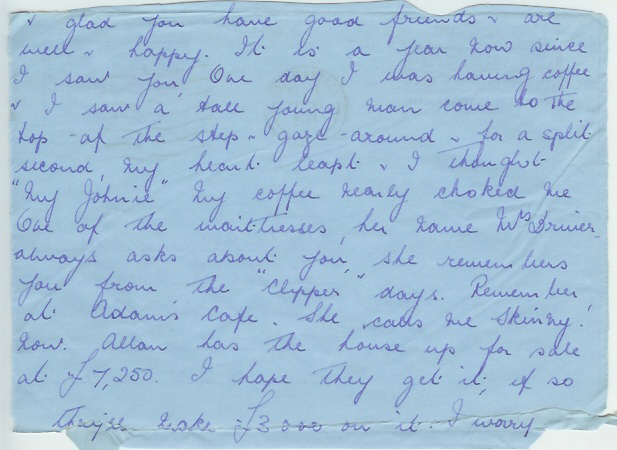 & glad you have good friends & are
well & happy. It is a year now since
I saw you. One day I was having coffee
& I saw a tall young man come to the
top of the step & gaze around & for a split
second, my heart leapt & I thought
"My Johnie" My coffee nearly choked me
One of the waitresses, her name Mrs Driver
always asks about you, she remembers
you from the "Clipper" days. Remember,
at Adams Cafe. She calls me Skinny!
Now. Allan has the house up for sale
at £7,250. I hope they get it, if so
they'll make £3000 on it. I worry